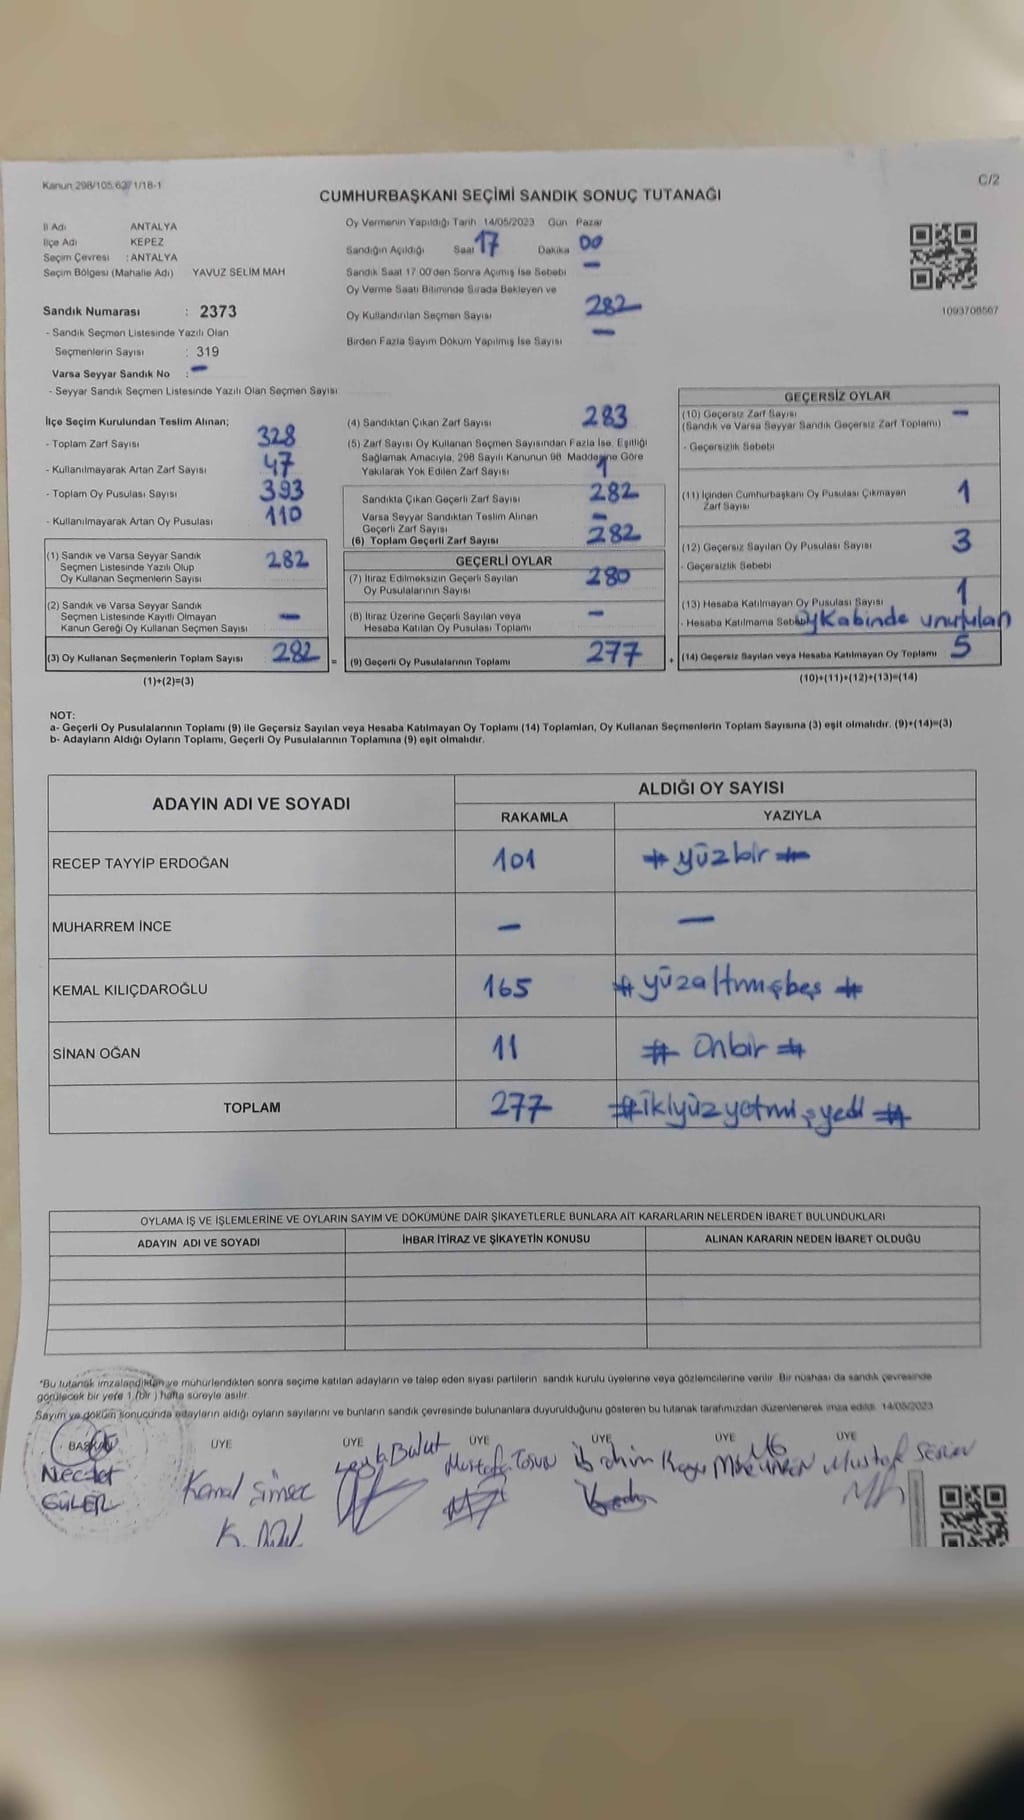 Kanun 298/105,62/1/18-1
C/2
CUMHURBAŞKANI SEÇİMİ SANDIK SONUÇ TUTANAĞI
İl Adı ANTALYA
İlçe Adı KEPEZ
Seçim Çevresi : ANTALYA
Seçim Bölgesi (Mahalle Adı) YAVUZ SELİM MAH
Sandık Numarası : 2373
- Sandık Seçmen Listesinde Yazılı Olan
Seçmenlerin Sayısı : 319
Varsa Seyyar Sandık No : –
- Seyyar Sandık Seçmen Listesinde Yazılı Olan Seçmen Sayısı
Oy Vermenin Yapıldığı Tarih 14/05/2023 Gün Pazar
Sandığın Açıldığı Saat 17 Dakika 00
Sandık Saat 17:00'den Sonra Açımış İse Sebebi –
Oy Verme Saati Bitiminde Sırada Bekleyen ve
Oy Kullandırılan Seçmen Sayısı 282
Birden Fazla Sayım Döküm Yapılmış İse Sayısı –
1093708567
İlçe Seçim Kurulundan Teslim Alınan;
- Toplam Zarf Sayısı 328
- Kullanılmayarak Artan Zarf Sayısı 47
- Toplam Oy Pusulası Sayısı 393
- Kullanılmayarak Artan Oy Pusulası 110
(1) Sandık ve Varsa Seyyar Sandık
Seçmen Listesinde Yazılı Olup 282
Oy Kullanan Seçmenlerin Sayısı
(2) Sandık ve Varsa Seyyar Sandık
Seçmen Listesinde Kayıtlı Olmayan –
Kanun Gereği Oy Kullanan Seçmen Sayısı
(3) Oy Kullanan Seçmenlerin Toplam Sayısı 282 =
(1)+(2)=(3)
(4) Sandıktan Çıkan Zarf Sayısı 283
(5) Zarf Sayısı Oy Kullanan Seçmen Sayısından Fazla İse, Eşitliği
Sağlamak Amacıyla, 298 Sayılı Kanunun 98. Maddesine Göre
Yakılarak Yok Edilen Zarf Sayısı 1
Sandıkta Çıkan Geçerli Zarf Sayısı 282
Varsa Seyyar Sandıktan Teslim Alınan
Geçerli Zarf Sayısı –
(6) Toplam Geçerli Zarf Sayısı 282
GEÇERLİ OYLAR
(7) İtiraz Edilmeksizin Geçerli Sayılan
Oy Pusulalarının Sayısı 280
(8) İtiraz Üzerine Geçerli Sayılan veya
Hesaba Katılan Oy Pusulası Toplamı –
(9) Geçerli Oy Pusulalarının Toplamı 277 +
GEÇERSİZ OYLAR
(10) Geçersiz Zarf Sayısı –
(Sandık ve Varsa Seyyar Sandık Geçersiz Zarf Toplamı)
- Geçersizlik Sebebi
(11) İçinden Cumhurbaşkanı Oy Pusulası Çıkmayan
Zarf Sayısı 1
(12) Geçersiz Sayılan Oy Pusulası Sayısı 3
- Geçersizlik Sebebi
(13) Hesaba Katılmayan Oy Pusulası Sayısı 1
- Hesaba Katılmama Sebebi oy Kabinde unutulan
(14) Geçersiz Sayılan veya Hesaba Katılmayan Oy Toplamı 5
(10)+(11)+(12)+(13)=(14)
NOT:
a- Geçerli Oy Pusulalarının Toplamı (9) ile Geçersiz Sayılan veya Hesaba Katılmayan Oy Toplamı (14) Toplamları, Oy Kullanan Seçmenlerin Toplam Sayısına (3) eşit olmalıdır. (9)+(14)=(3)
b- Adayların Aldığı Oyların Toplamı, Geçerli Oy Pusulalarının Toplamına (9) eşit olmalıdır.
ADAYIN ADI VE SOYADI ALDIĞI OY SAYISI
RAKAMLA YAZIYLA
RECEP TAYYİP ERDOĞAN 101 # yüzbir #
MUHARREM İNCE – –
KEMAL KILIÇDAROĞLU 165 # yüzaltmışbeş #
SİNAN OĞAN 11 # Onbir #
TOPLAM 277 # ikiyüzyetmişyedi #
OYLAMA İŞ VE İŞLEMLERİNE VE OYLARIN SAYIM VE DÖKÜMÜNE DAİR ŞİKAYETLERLE BUNLARA AİT KARARLARIN NELERDEN İBARET BULUNDUKLARI
ADAYIN ADI VE SOYADI İHBAR İTİRAZ VE ŞİKAYETİN KONUSU ALINAN KARARIN NEDEN İBARET OLDUĞU
*Bu tutanak imzalandıktan ve mühürlendikten sonra seçime katılan adayların ve talep eden siyasi partilerin sandık kurulu üyelerine veya gözlemcilerine verilir. Bir nüshası da sandık çevresinde
görülecek bir yere 1 (bir) hafta süreyle asılır.
Sayım ve döküm sonucunda adayların aldığı oyların sayılarını ve bunların sandık çevresinde bulunanlara duyurulduğunu gösteren bu tutanak tarafımızdan düzenlenerek imza edildi. 14/05/2023
BAŞKAN ÜYE ÜYE ÜYE ÜYE ÜYE ÜYE
Necdet Kamal Şimşec Leyla Bulut Mustafa Tosun İbrahim Mustafa SERİN
GÜLER